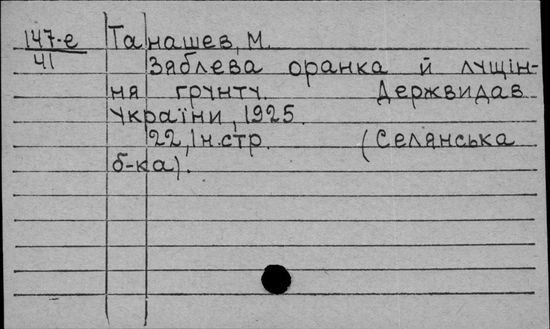 147-е Танашев, М.
41
Зяблева оранка й лущін-
ня грунту. Держвидав
України, 1925.
22, 1н.стр. (Селянська
б-ка).